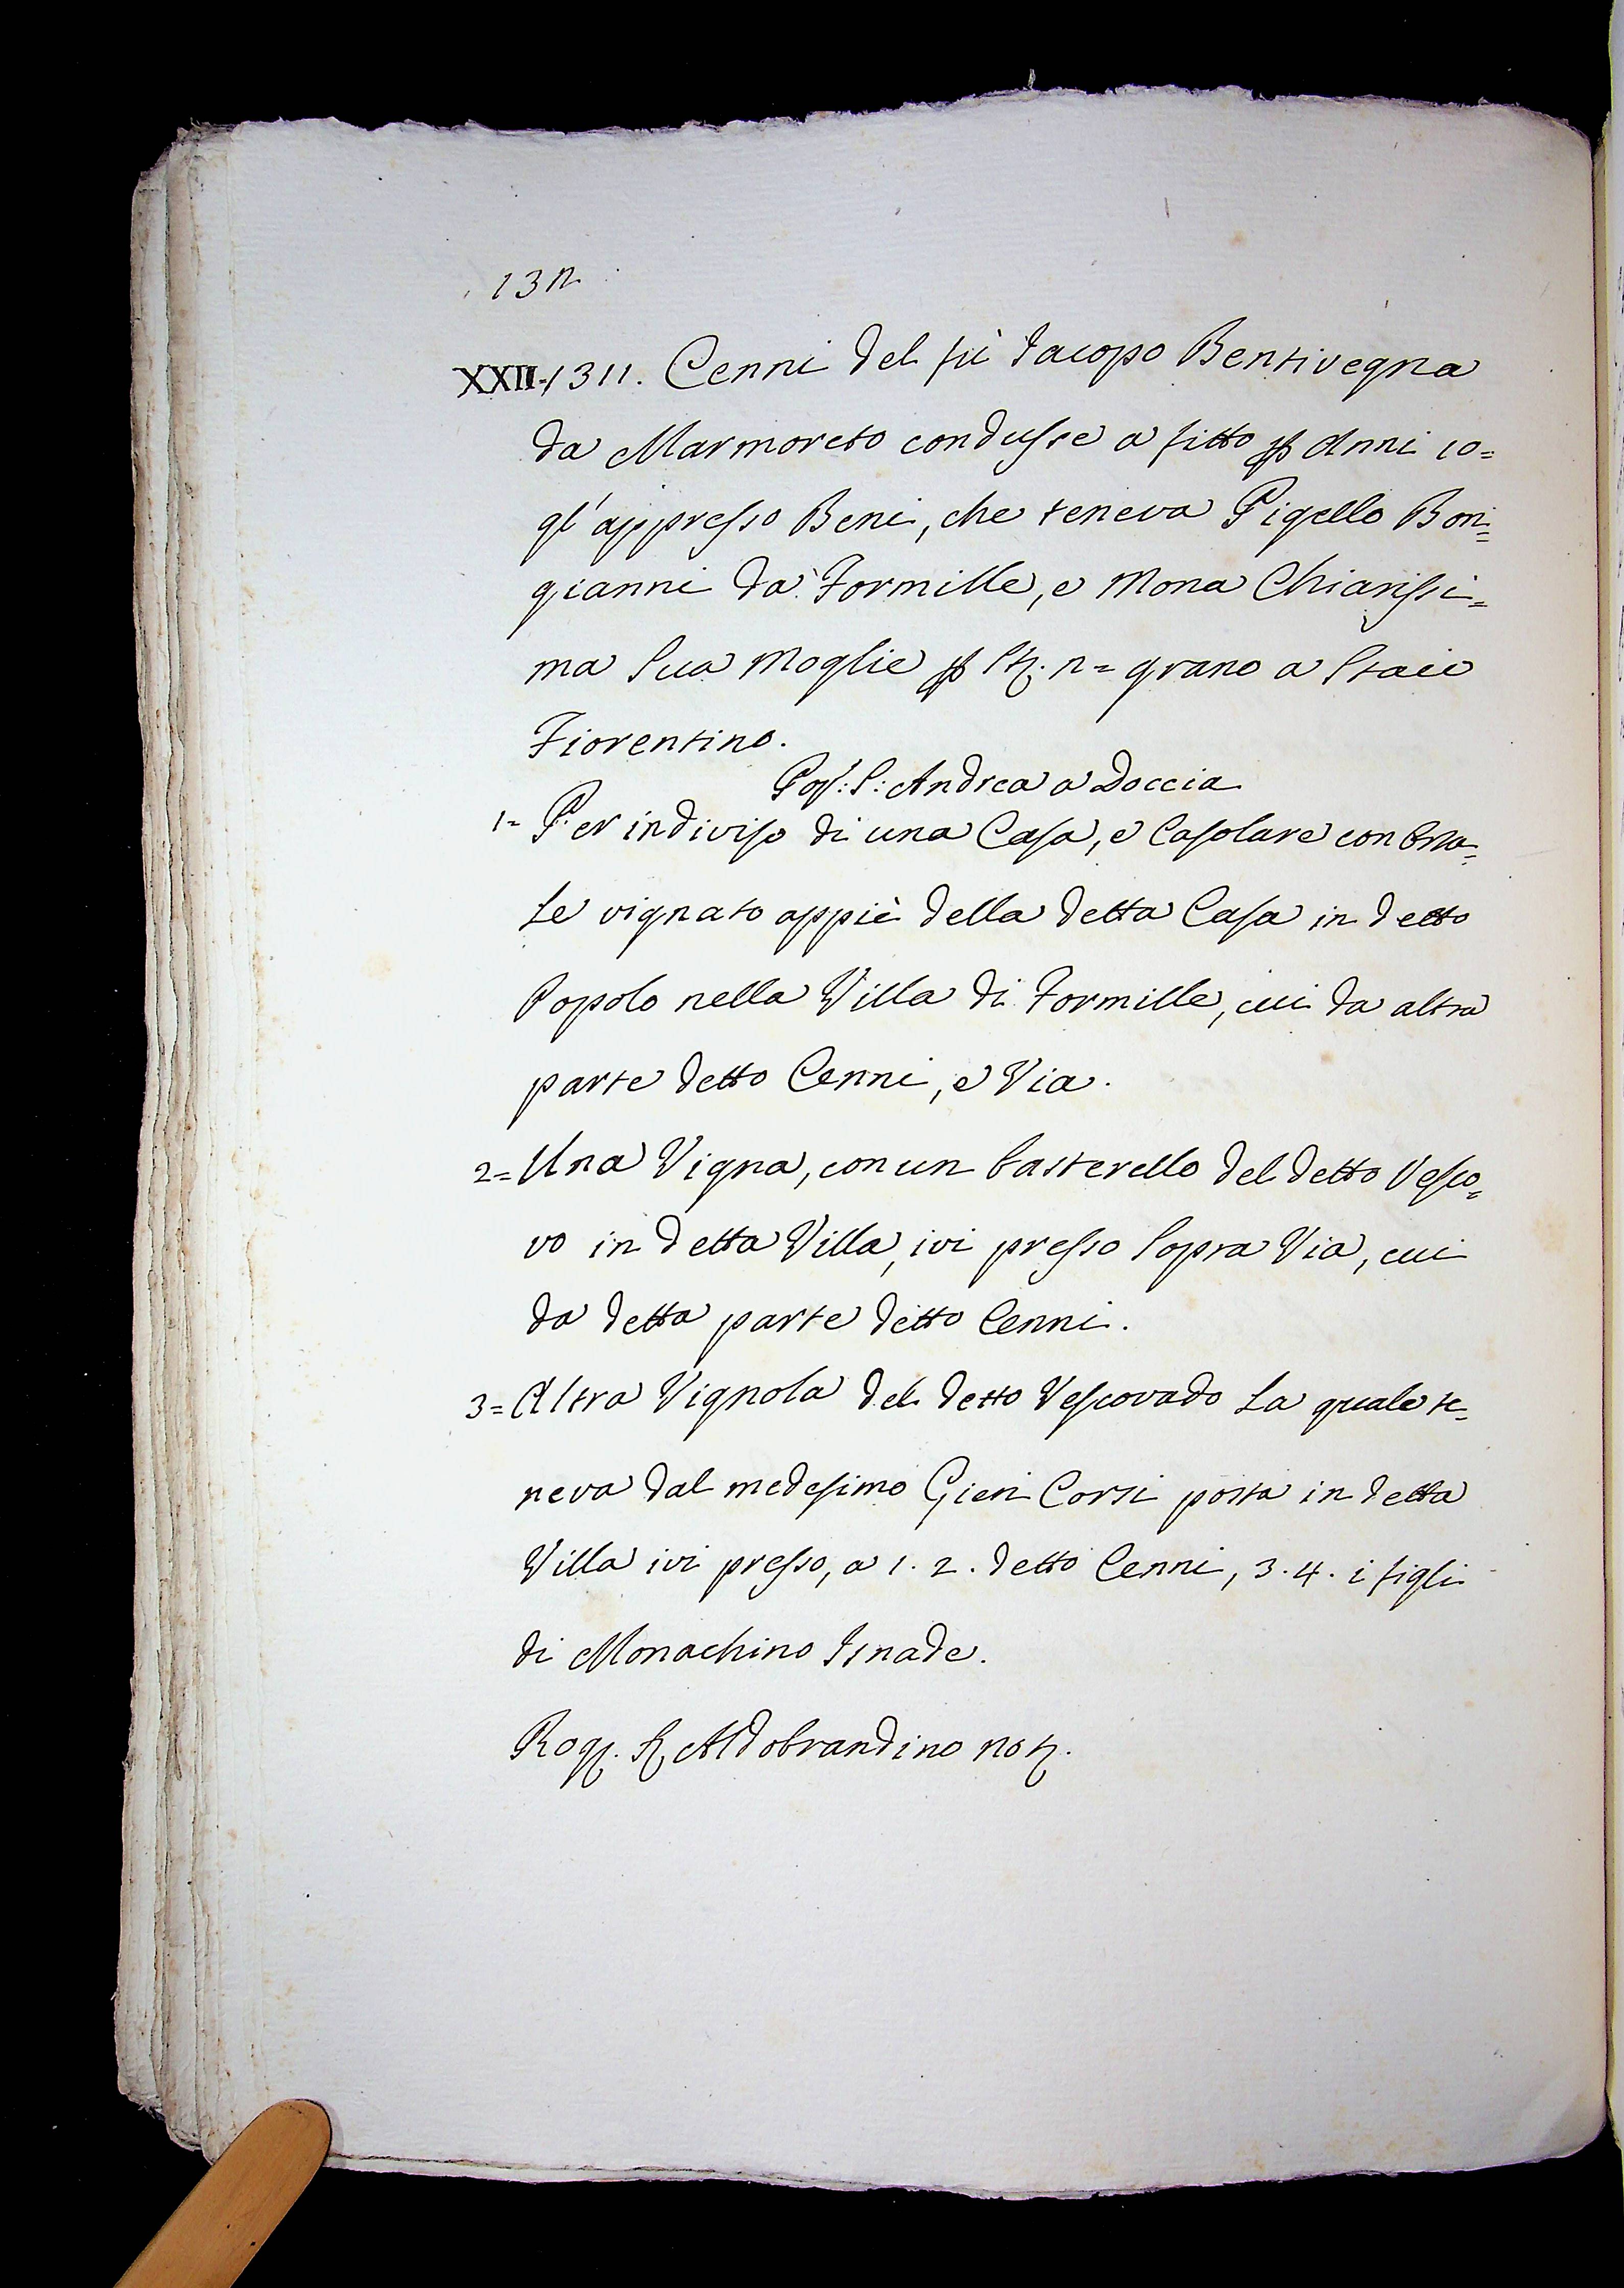 13n
XXII. 1311. Cenni del fù Iacopo Bentivegna
da Marmoreto condusse a fitto p anni 10=
gl' appresso Beni, che teneva Pigello Bon=
gianni da Formille, e Mona Chiarissi=
ma Sua Moglie p St. n= grano a Staio
Fiorentino.
Pop: S: Andrea a Doccia
1= Per indiviso di una Casa, e Casolare con
le vignato appiè della detta Casa in detto
Popolo nella Villa di Formille, cui da altra
parte detto Cenni, e Via.
2= Una Vigna, con un Casterello del detto Vesco=
vo in detta Villa, ivi presso Sopra Via, cui
da detta parte detto Cenni.
3= Altra Vignola del detto Vescovado La quale te=
neva dal medesimo Gieri Corsi posta in detta
Villa ivi presso, a 1. 2. detto Cenni, 3. 4. i figli
di Monachino Isnade.
Rog. S Aldobrandino not.